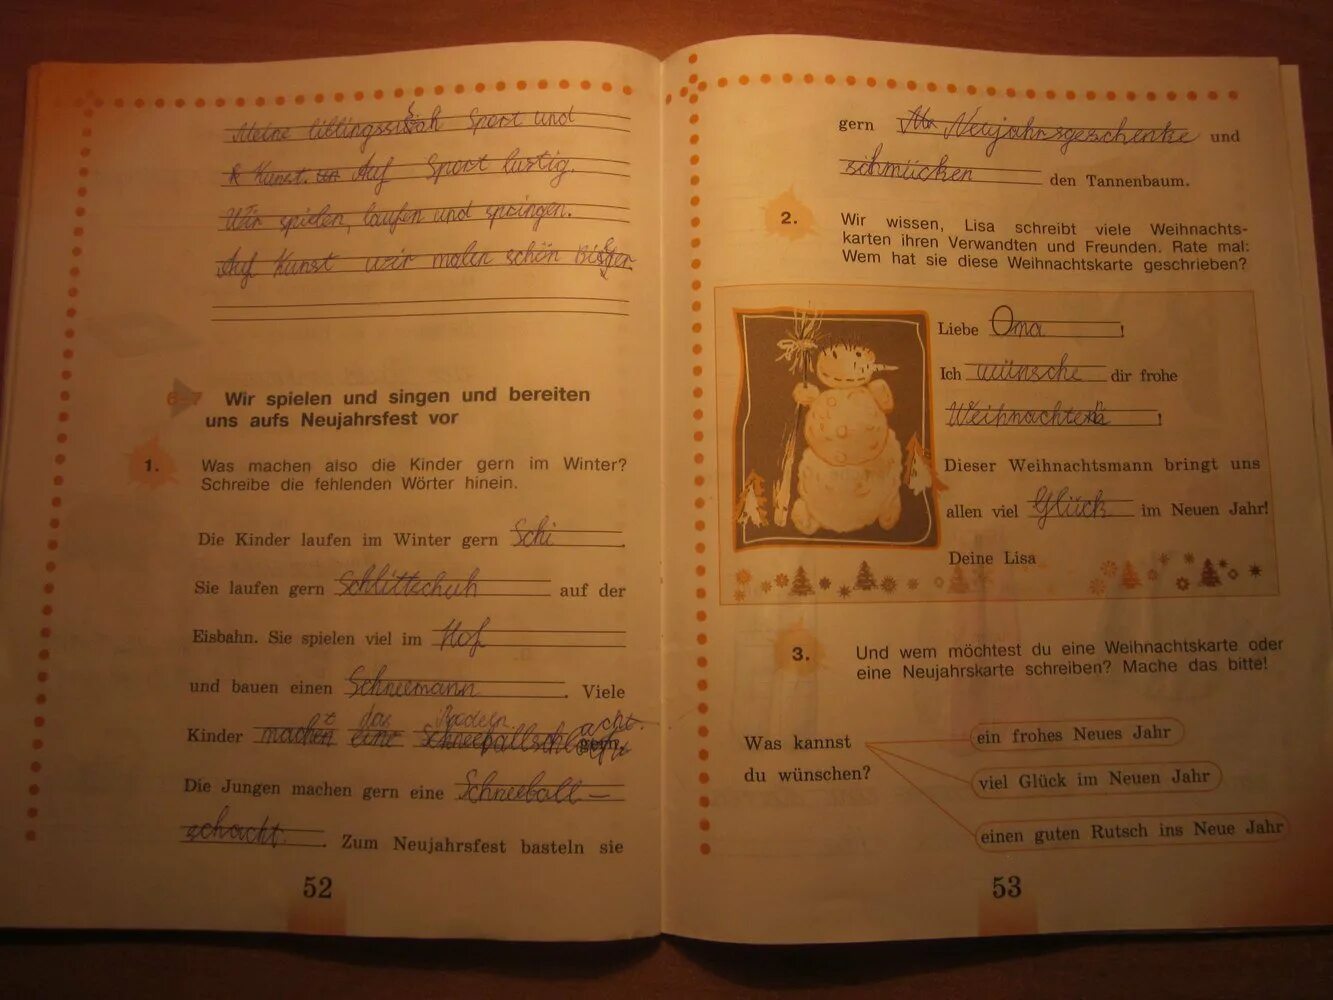 Meine liblingssach Sport und
Kunst. Auf Sport lustig.
Wir spielen, laufen und springen.
Auf Kunst wir malen schön Bilder.
6-7 Wir spielen und singen und bereiten
uns aufs Neujahrsfest vor
1. Was machen also die Kinder gern im Winter?
Schreibe die fehlenden Wörter hinein.
Die Kinder laufen im Winter gern Schi.
Sie laufen gern Schlittschuh auf der
Eisbahn. Sie spielen viel im Hof
und bauen einen Schneemann. Viele
macht das Rodeln
Kinder machen eine gern.
Die Jungen machen gern eine Schneeball-
schacht. Zum Neujahrsfest basteln sie
52
gern Neujahrsgeschenke und
schmücken den Tannenbaum.
2. Wir wissen, Lisa schreibt viele Weihnachts-
karten ihren Verwandten und Freunden. Rate mal:
Wem hat sie diese Weihnachtskarte geschrieben?
Liebe Oma!
Ich wünsche dir frohe
Weihnachten!
Dieser Weihnachtsmann bringt uns
allen viel Glück im Neuen Jahr!
Deine Lisa
3. Und wem möchtest du eine Weihnachtskarte oder
eine Neujahrskarte schreiben? Mache das bitte!
Was kannst
du wünschen?
ein frohes Neues Jahr
viel Glück im Neuen Jahr
einen guten Rutsch ins Neue Jahr
53